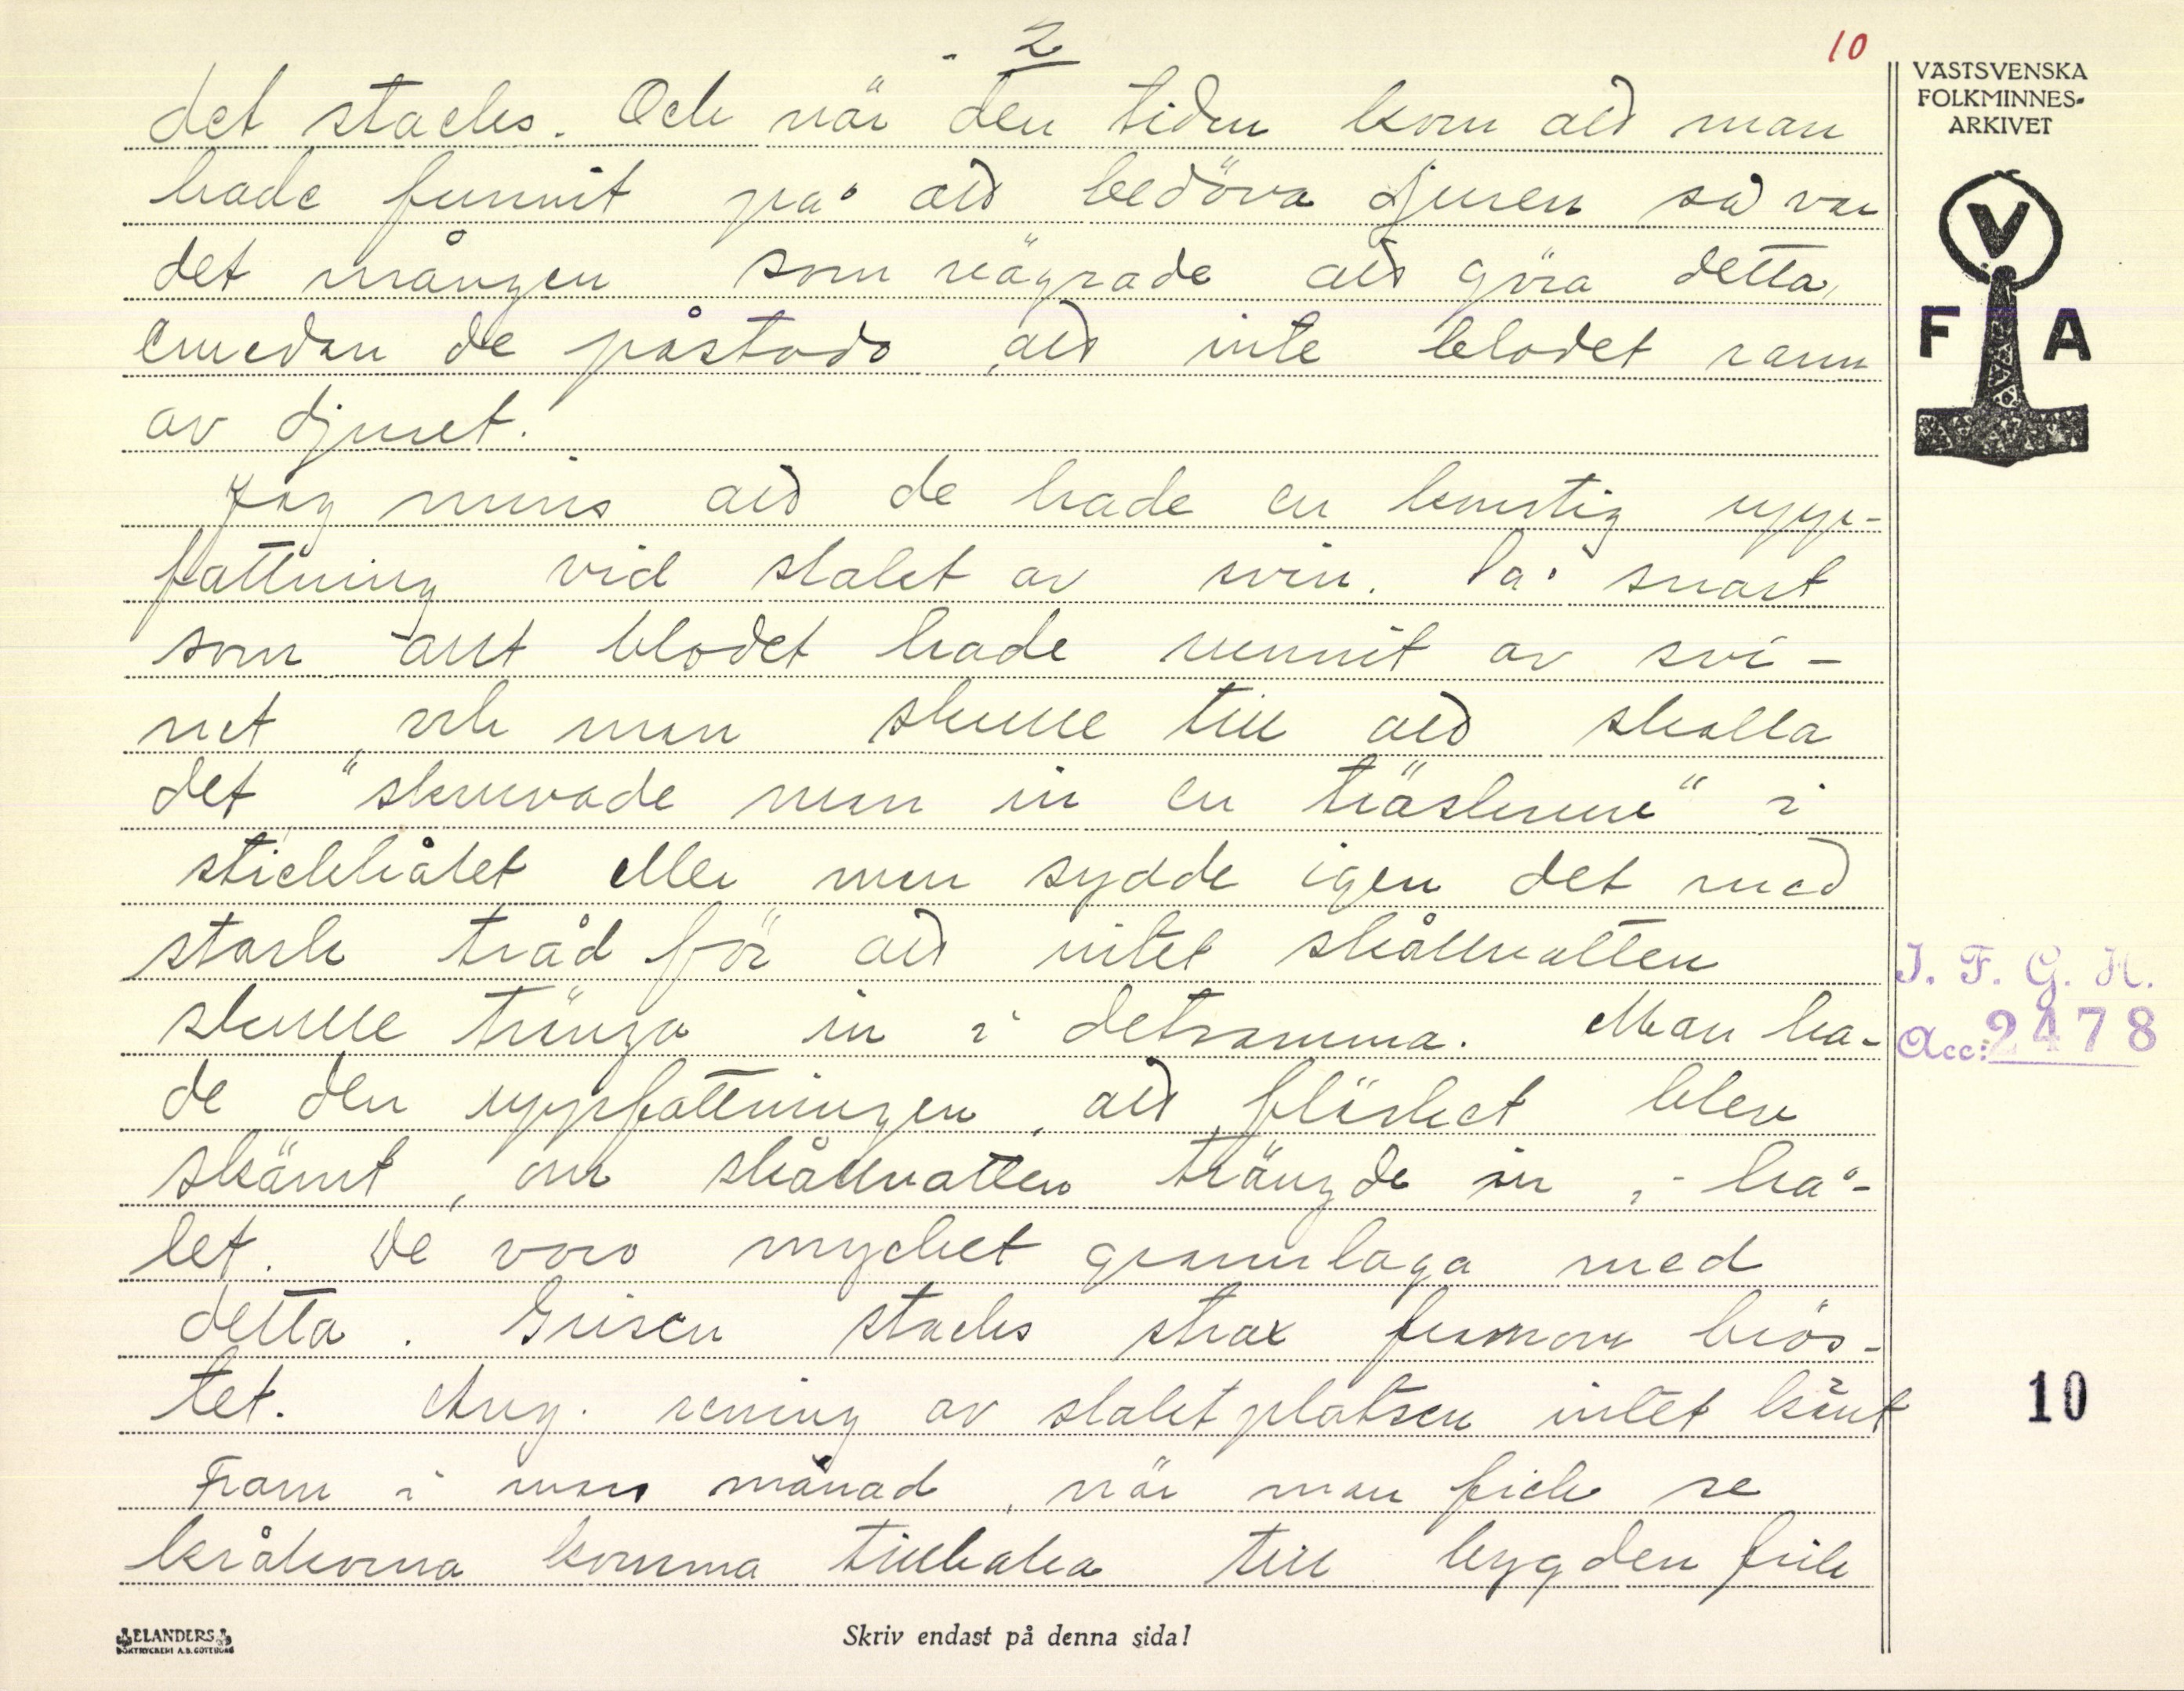 - 2
10
det stacks. Och när den tiden kom att man
hade funnit på att bedöva djuren så var
det mången som vägrade att göra detta,
emedan de påstodo, att inte blodet rann
av djuret.
Jag minns att de hade en konstig upp-
fattning vid slakt av svin. Så snart
som allt blodet hade runnit av svi-
net, och man skulle till att skolla
det "skruvade man in en träskruv" i
stickhålet eller man sydde igen det med
stark tråd för att intet skållvatten
skulle tränga in i detsamma. Man ha-
de den uppfattningen, att fläsket blev
skämt, om skållvatten trängde in i hå-
let. De voro mycket grannlaga med
detta. Grisen stacks strax framom brös-
tet. Ang. rening av slaktplatsen intet känt
Fram i mars månad, när man fick se
kråkorna komma tillbaka till bygden fick
VÄSTSVENSKA
FOLKMINNES-
ARKIVET
V
F A
I. F. G. H.
Acc: 2478
10
ELANDERS
BOKTRYCKERI A.B. GÖTEBORG
Skriv endast på denna sida!